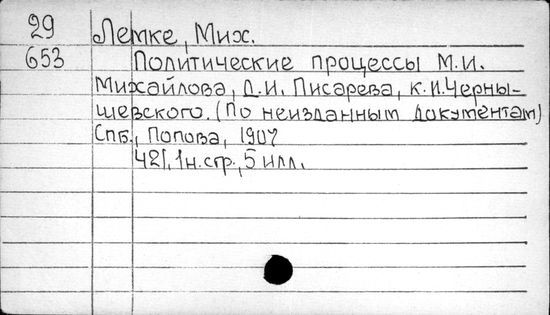 29 Лемке, Мих.
653 Политические процессы М.И.
Михайлова, Д.И. Писарева, К.И.Черны-
шевского. (По неизданным документам)
Спб., Попова, 1907
421, 1н.стр., 5 илл.